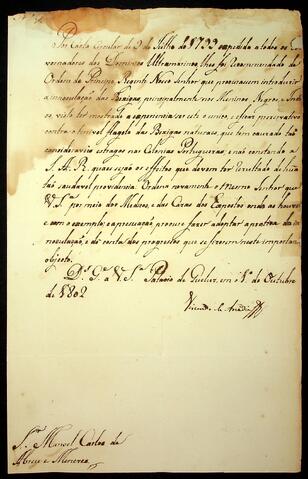 Por Carta Circular de 9 de Julho de 1799 expedida a todos os Go-
vernadores dos Dominios Ultramarinos, lhes foi recommendado de
Ordem do Principe Regente Nosso Senhor que procurassem introduzir
a inoculação das Bexigas, principalmente nos Meninos Negros, e In-
dios, visto ter mostrado a experiencia ser este o unico, e efficaz preservativo
contra o terrivel flagelo das Bexigas naturaes, que tem causado tão
consideraveis estragos nas Colonias Portuguezas, e não constando a
S. A. R. quaes sejão os effeitos que devem ter resultado de huma
tão saudavel providencia: Ordena novamente o Mesmo Senhor que
V. S.ª por meio dos Medicos, e das Casas dos Expostos onde as houver
e com o exemplo, e persuação procure fazer adoptar a pratica da
inoculação, e dê conta dos progressos que se fizerem neste importante
objecto.
D.s G.e a V. S.ª Palacio de Queluz, em 1.º de Outubro
de 1802
Visconde de Anadia
S.r Manoel Carlos de
Abreu e Menezes